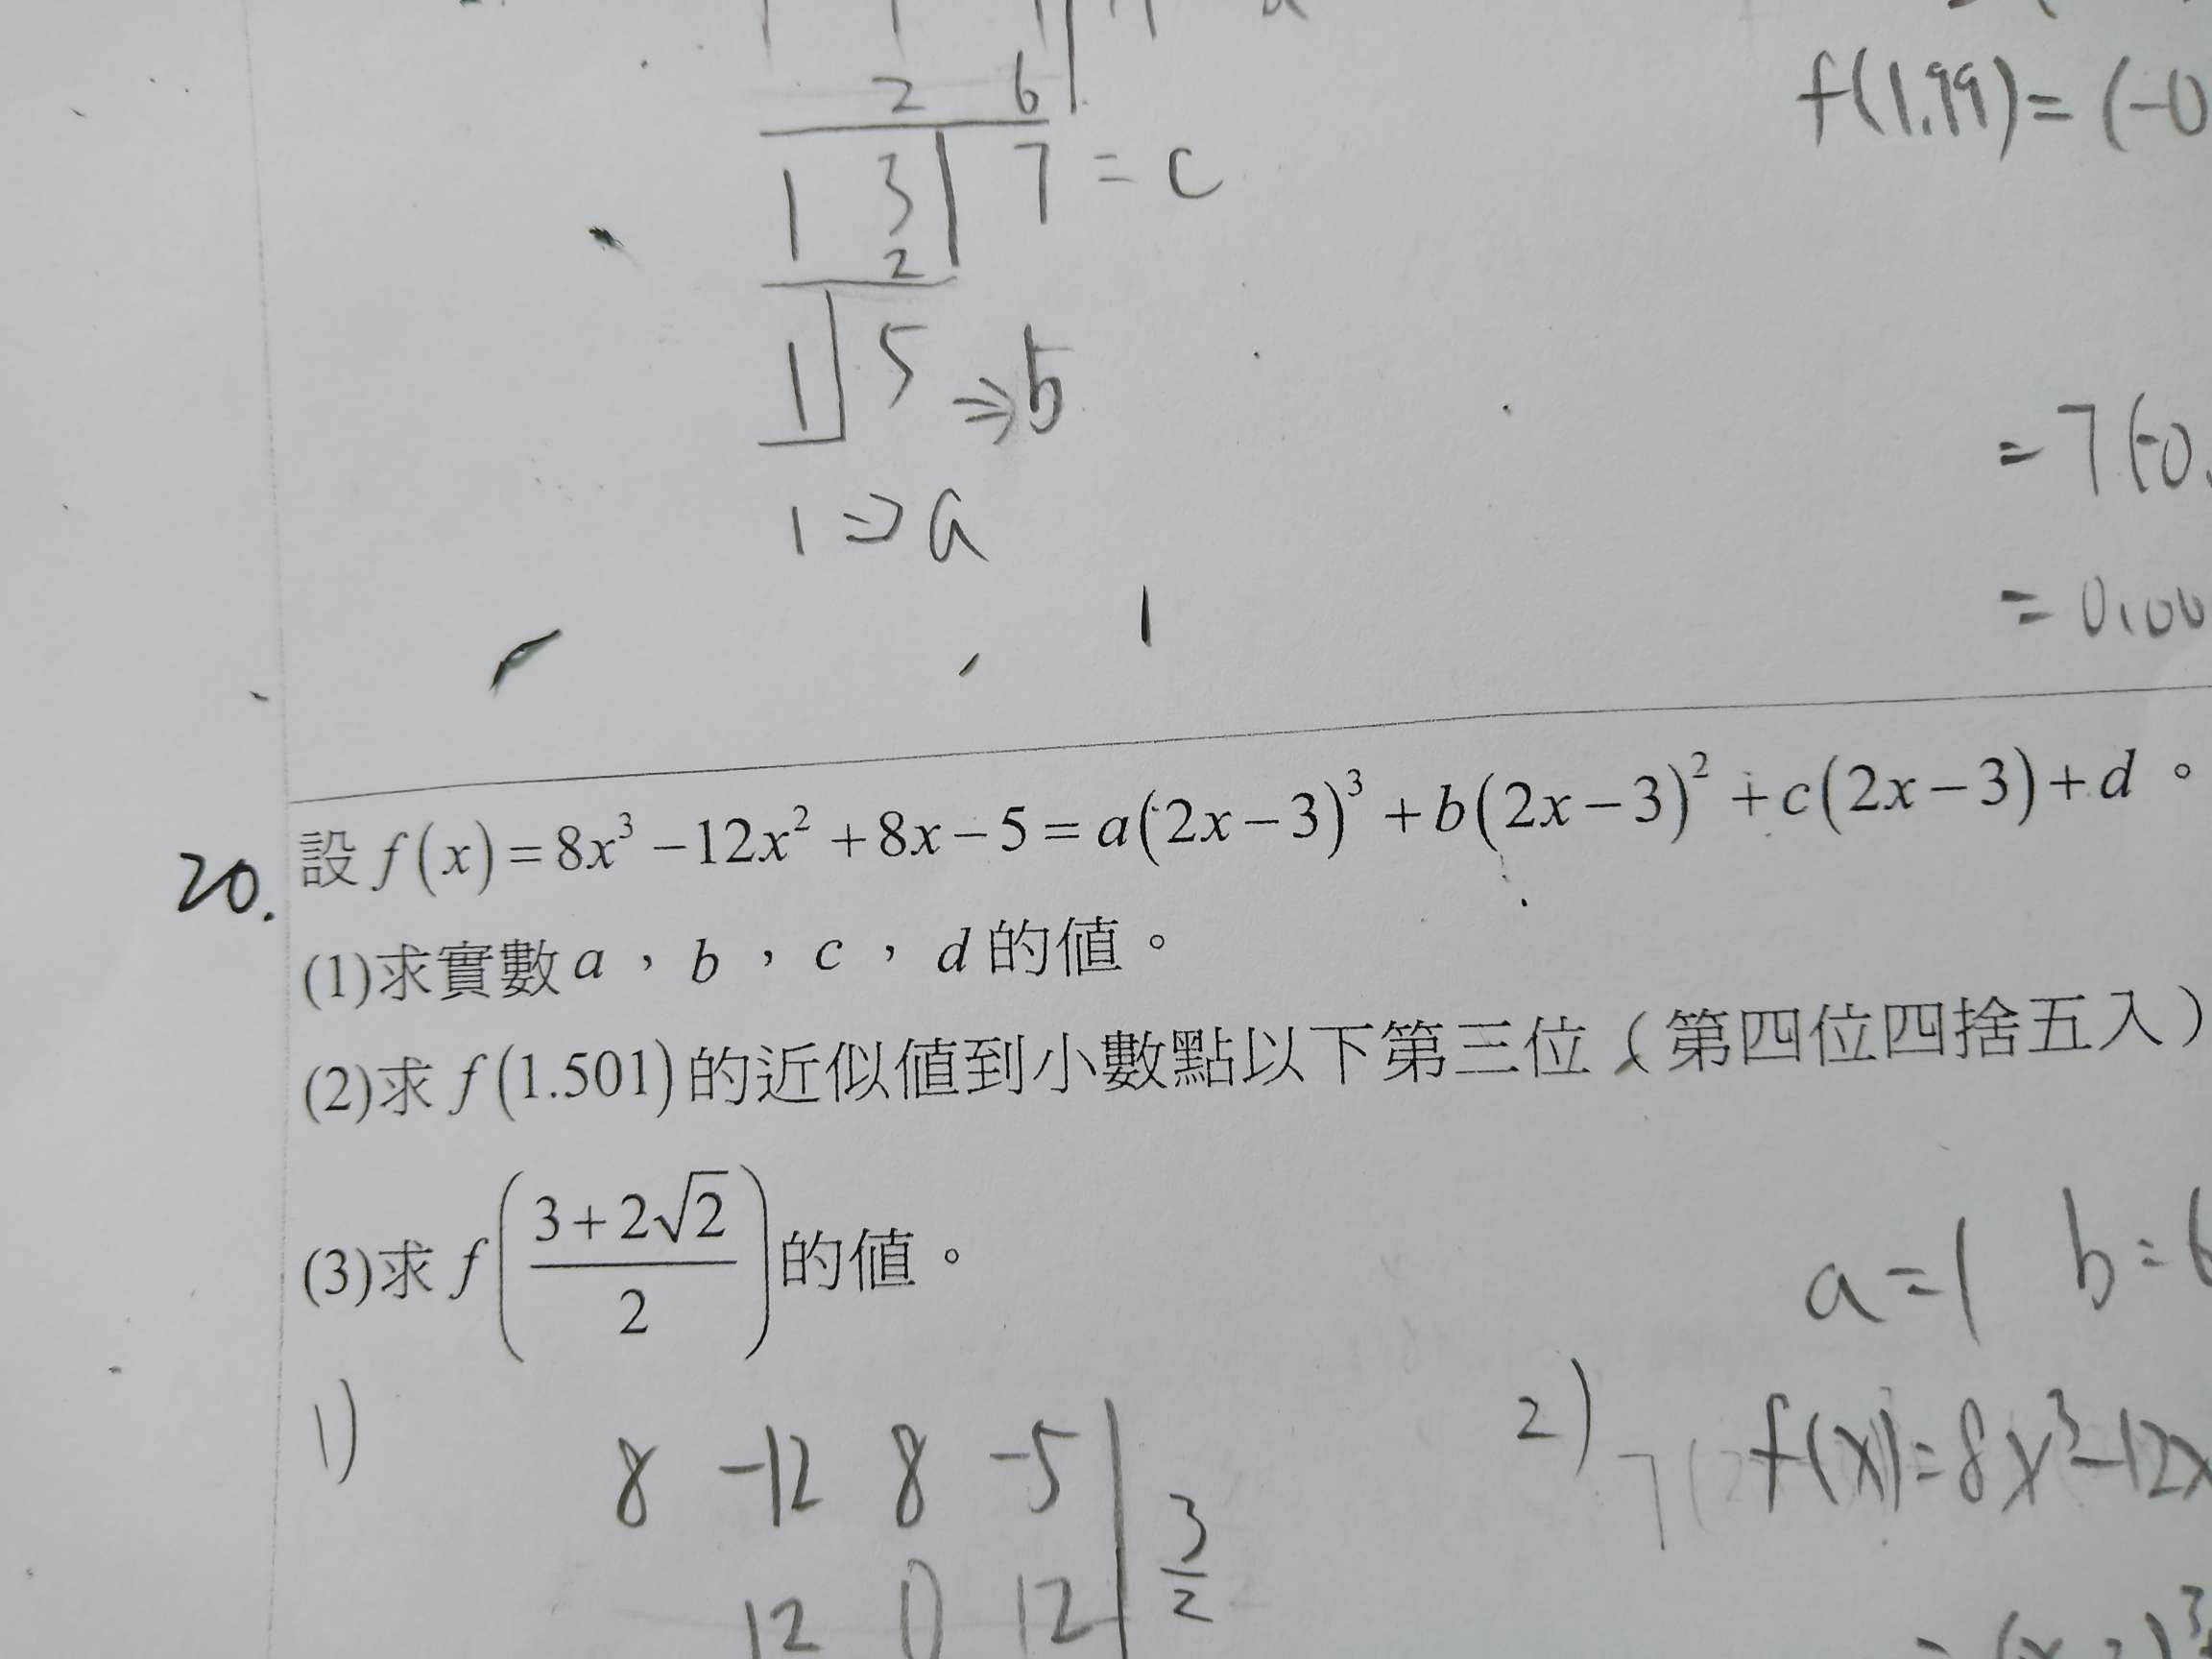 2 6
f(1.99)=(-0
1 3 7 = c
2
1 5 ⇒b
= 7(-0.
1 ⇒ a
= 0.00
20. 設 f(x)=8x³-12x²+8x-5=a(2x-3)³+b(2x-3)²+c(2x-3)+d。
(1)求實數a,b,c,d的值。
(2)求 f(1.501)的近似值到小數點以下第三位(第四位四捨五入)
(3)求 f((3+2√2)/2)的值。
a=1 b=6
1) 8 -12 8 -5 3/2
2) f(x)=8x³-12x
12 0 12